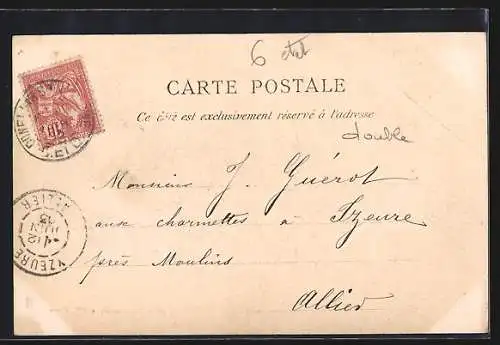 6 etat
CARTE POSTALE
Ce côté est exclusivement réservé à l'adresse
double
Monsieur J. Guérot
aux charmettes à Izeure
près Moulins
Allier
YZEURE
ALLIER
12
JUIN